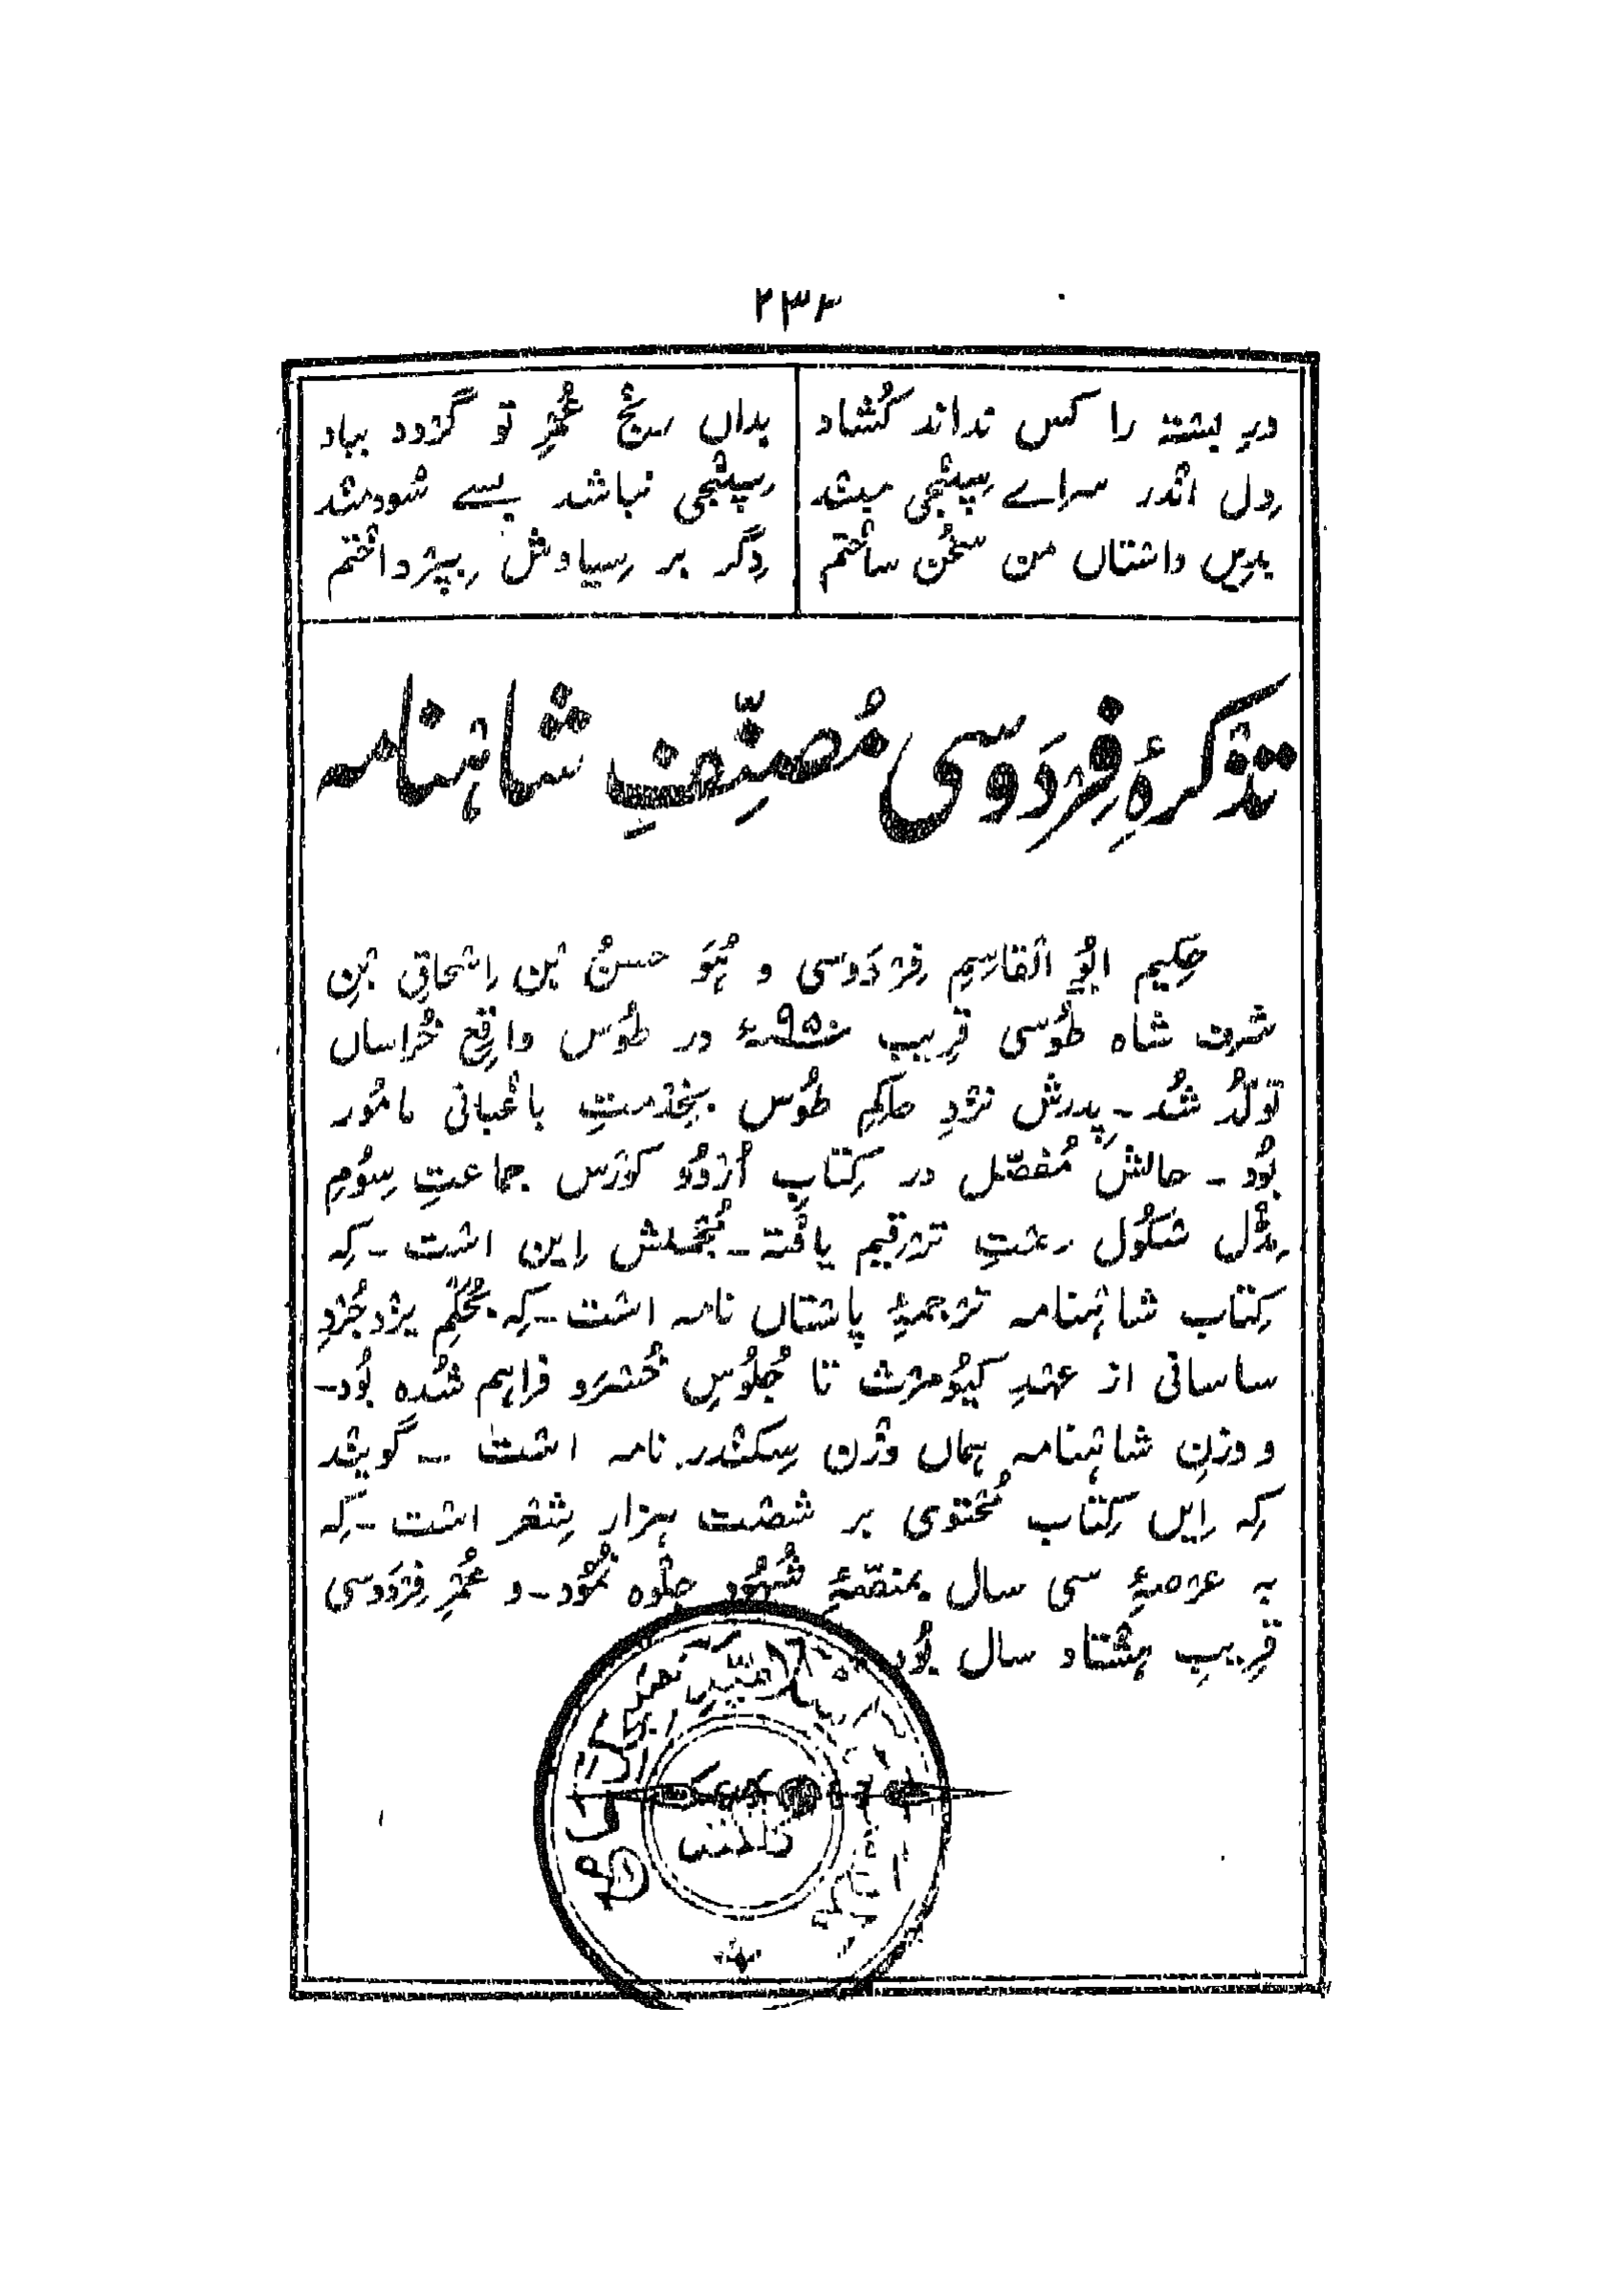 ۲۳۴
درِ بستہ را کس نداند کُشاد | بداں رنج عُمْرِ تو گرْدد بباد
دِل انْدر سراے سِپنْجی مبنْد | سِپنْجی نباشد بسے سُودمنْد
بدِیں داسْتاں من سخُن ساخْتم | دِگر بر سِیاوش بِپرْداخْتم
تذْکرۂ فِرْدَوسی مُصنِّفِ شاہنامہ
حکِیم ابُو الْقاسِم فِرْدَوسی و ہُوَ حسنُ بْن اِسْحاق بْنِ
شرف شاہ طُوسی قرِیبِ سنہ ۹۵۰ء در طُوس واقِعِ خُراساں
تولُّد شُد۔ پِدرش نزْدِ حاکِمِ طُوس بخِدْمتِ باغْبانی مامُور
بُود۔ حالش مُفصّل در کِتابِ اُرْدُو کورَس جماعتِ سِوُم
مِڈْل سْکُول رختِ ترْقیم یافْتہ۔ مُجْملش اِین اسْت۔ کِہ
کِتاب شاہْنامہ ترْجمۂ باسْتاں نامہ اسْت۔ کِہ بحُکْمِ یزْدجُرْدِ
ساسانی از عہْدِ کیُومرْث تا جُلُوسِ خُسْرَو فراہم شُدہ بُود۔
و وزنِ شاہْنامہ ہماں وزْن سِکنْدر نامہ اسْت ۔ گویند
کِہ اِیں کِتاب مُحْتوی بر شصْت ہزار شِعْر اسْت۔ کِہ
بہ عرصۂ سی سال بمنصّۂ شُہُود جلْوہ نمُود۔ و عُمْرِ فِرْدَوسی
قرِیبِ ہشْتاد سال بُود